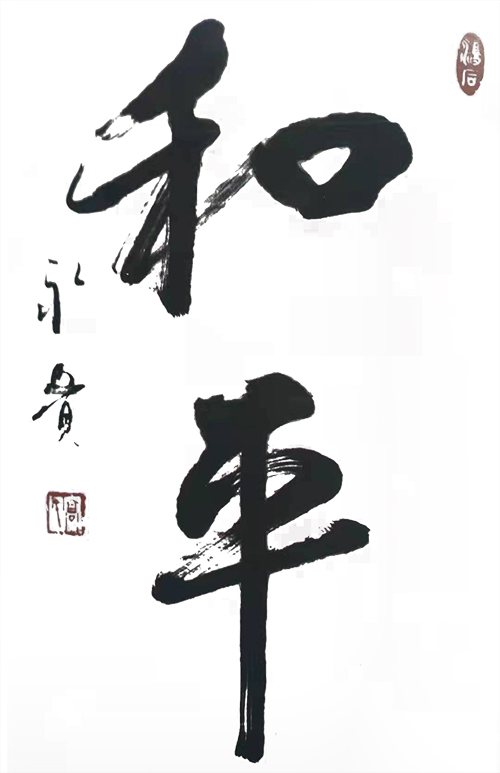 和平
永贵